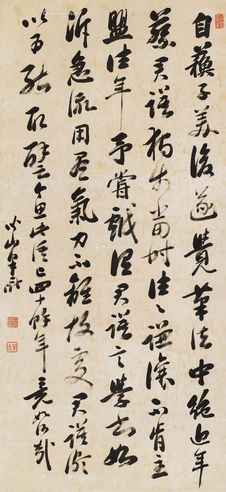 自蘇子美後遂覺筆法中絕近年
蔡君謨獨步當時往往謙讓不肯主
盟往年予嘗戲謂君謨言學書如
泝急流用盡氣力不離故處君謨頗
以為能取譬今思此語已四十餘年竟如何哉